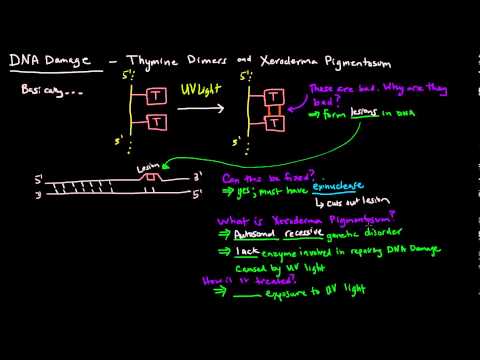 DNA Damage – Thymine Dimers and Xeroderma Pigmentosum
Basically...
5'
T
T
3'
UV Light
5'
T
T
3'
These are bad. Why are they
bad?
⇒ form lesions in DNA
Lesion
5' 3'
3' 5'
Can this be fixed?
⇒ yes; must have exinuclease
↳ cuts out lesion
What is Xeroderma Pigmentosum?
⇒ Autosomal recessive genetic disorder
⇒ lack enzyme involved in repairing DNA Damage
caused by UV light
How is it treated?
⇒ ____ exposure to UV light